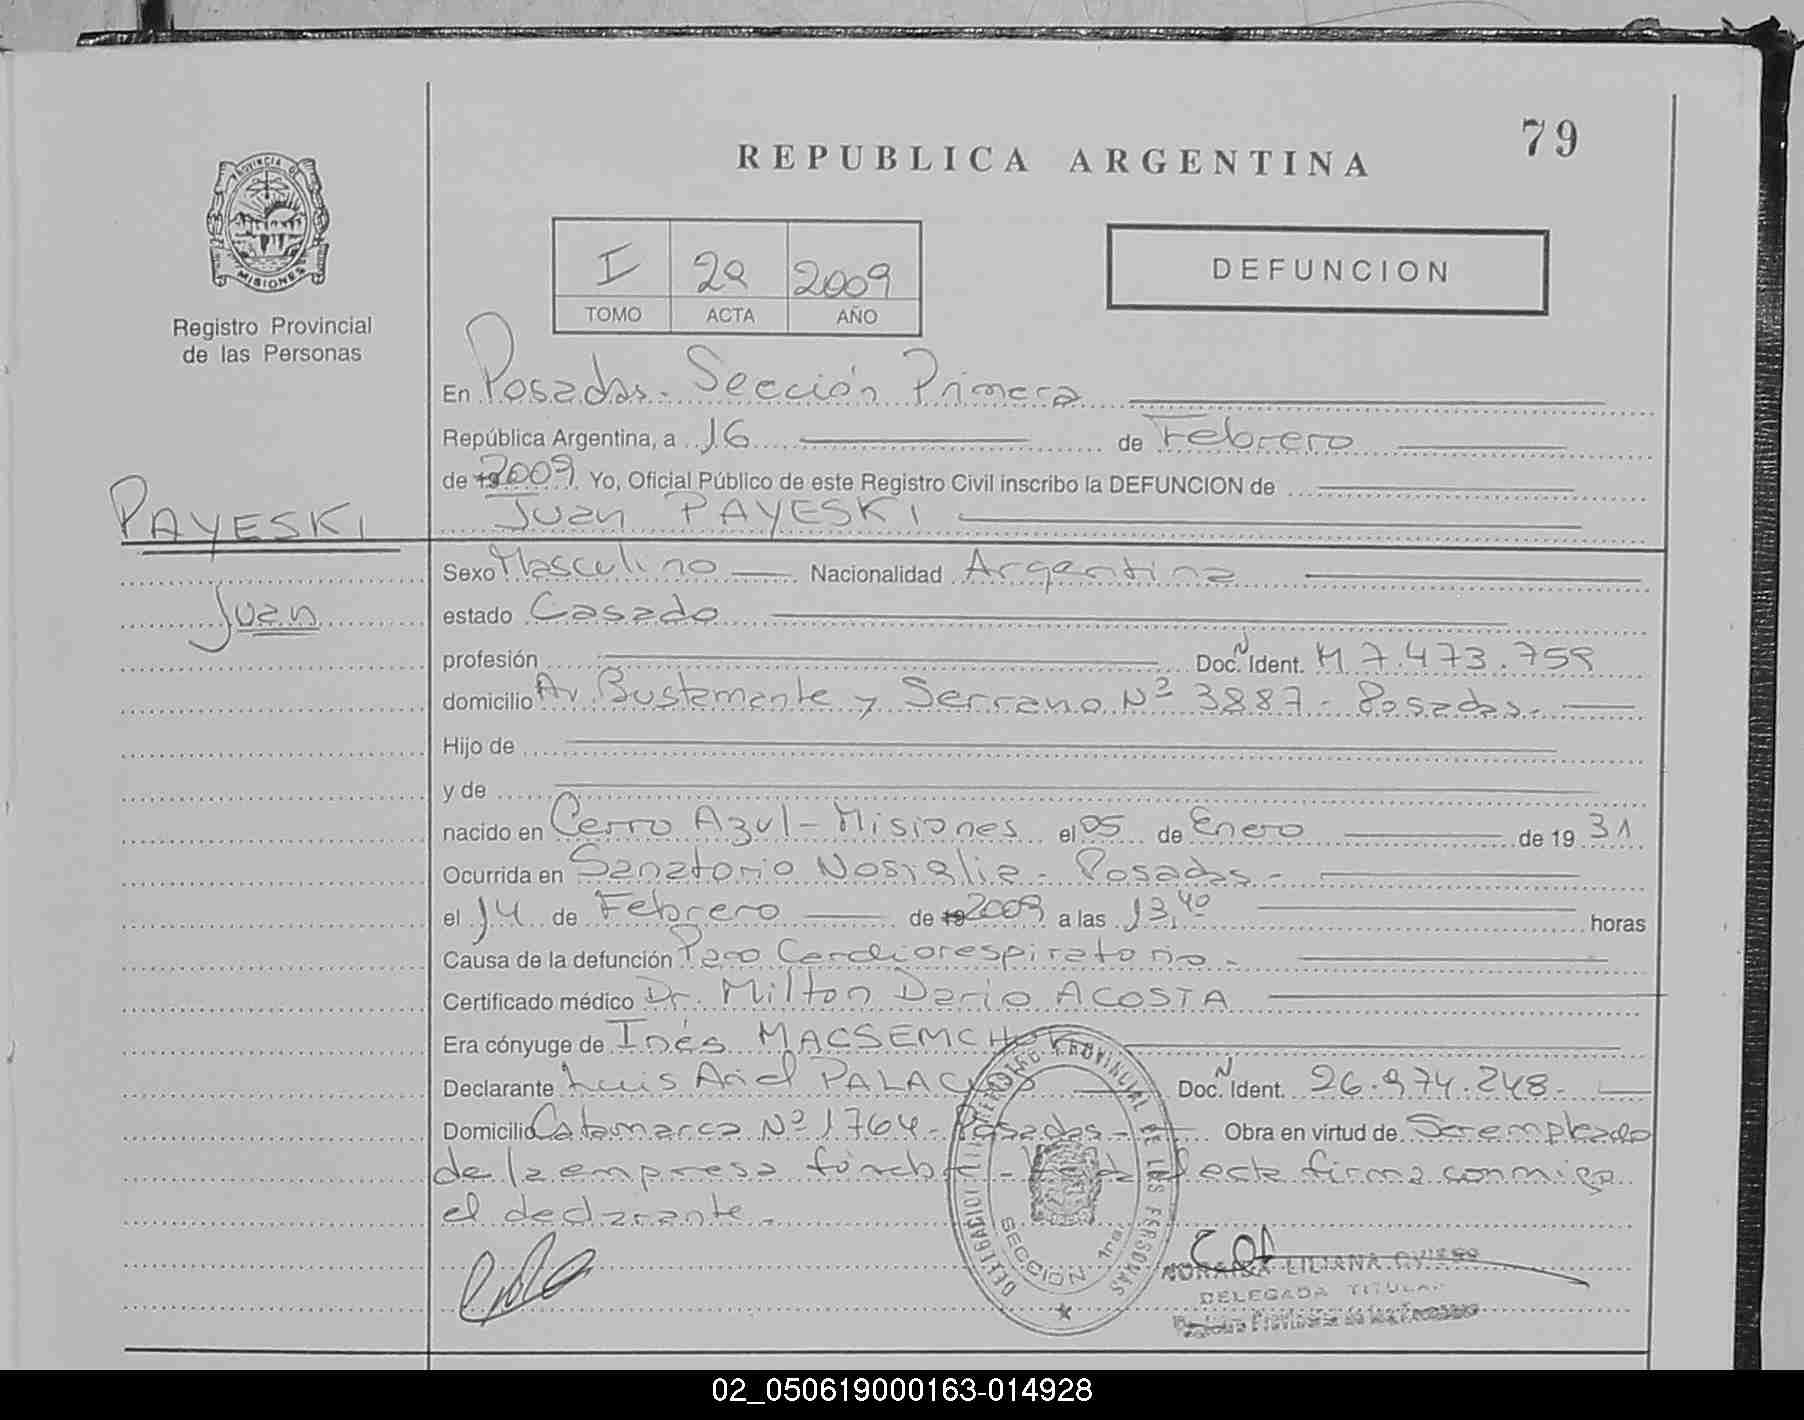 79
REPUBLICA ARGENTINA
PROVINCIA DE
MISIONES
Registro Provincial
de las Personas
I 29 2009
TOMO ACTA AÑO
DEFUNCION
En Posadas - Sección Primera
República Argentina, a 16 de Febrero
de 19 2009 Yo, Oficial Público de este Registro Civil inscribo la DEFUNCION de
PAYESKI
Juan PAYESKI
Juan
Sexo Masculino Nacionalidad Argentina
estado Casado
profesión Doc. N Ident. M 7.473.759
domicilio Av. Bustamante y Serrano Nº 3887 - Posadas.-
Hijo de
y de
nacido en Cerro Azul - Misiones el 05 de Enero de 19 31
Ocurrida en Sanatorio Nosiglia - Posadas -
el 14 de Febrero de 19 2009 a las 13,40 horas
Causa de la defunción Paro Cardiorespiratorio -
Certificado médico Dr. Milton Dario ACOSTA
Era cónyuge de Inés
Declarante Luis Ariel PALACIOS Doc. N Ident. 26.974.248.-
Domicilio Catamarca Nº 1764 - Posadas - Obra en virtud de Ser empleado
de la empresa fúnebre - firma conmigo
el declarante.-
REGISTRO PROVINCIAL DE LAS PERSONAS
SECCION 1ra
LILIANA
DELEGADA TITULAR
02_050619000163-014928